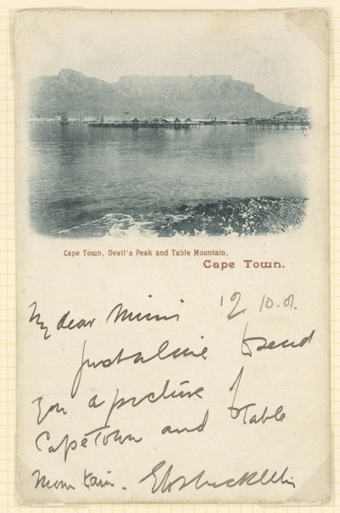 Cape Town, Devil's Peak and Table Mountain.
Cape Town.
My dear Mimi 12.10.01.
Just a line to send
you a picture of
Cape Town and Table
Mountain.